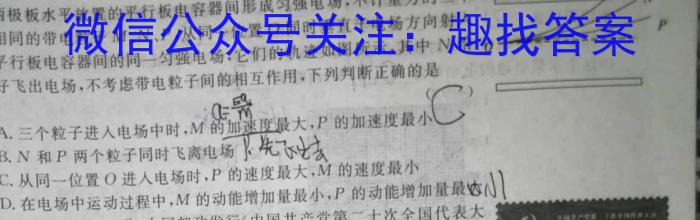 两极板水平放置的平行板电容器间形成匀强电场,
相同的带
微信公众号关注：趣找答案
平行板电容器间的同一匀强电场,它们的轨迹如图
子飞出电场,不考虑带电粒子间的相互作用,下列判断正确的是
(C)
P
A.三个粒子进入电场中时,M的加速度最大,P的加速度最小
B.N和P两个粒子同时飞离电场
C.从同一位置O进入电场时,P的速度最大,M的速度最小
D.在电场中运动过程中,M的动能增加量最小,P的动能增加量最
中国共产党第二十次全国代表大